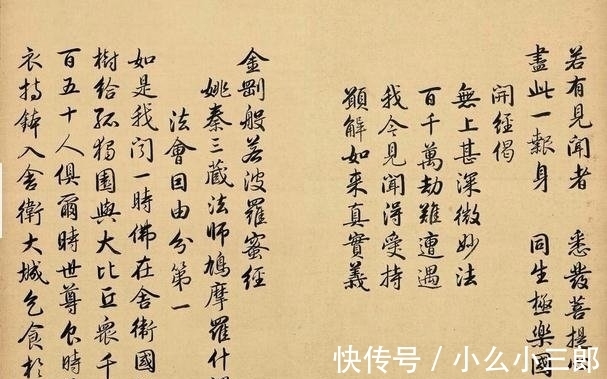 若有見聞者　悉發菩提
盡此一報身　同生極樂國
開經偈
無上甚深微妙法
百千萬劫難遭遇
我今見聞得受持
願解如來真實義
金剛般若波羅蜜經
姚秦三藏法師鳩摩羅什
法會因由分第一
如是我聞一時佛在舍衛國
樹給孤獨園與大比丘眾千
百五十人俱爾時世尊食時
衣持鉢入舍衛大城乞食於
快传号／小么小三郎